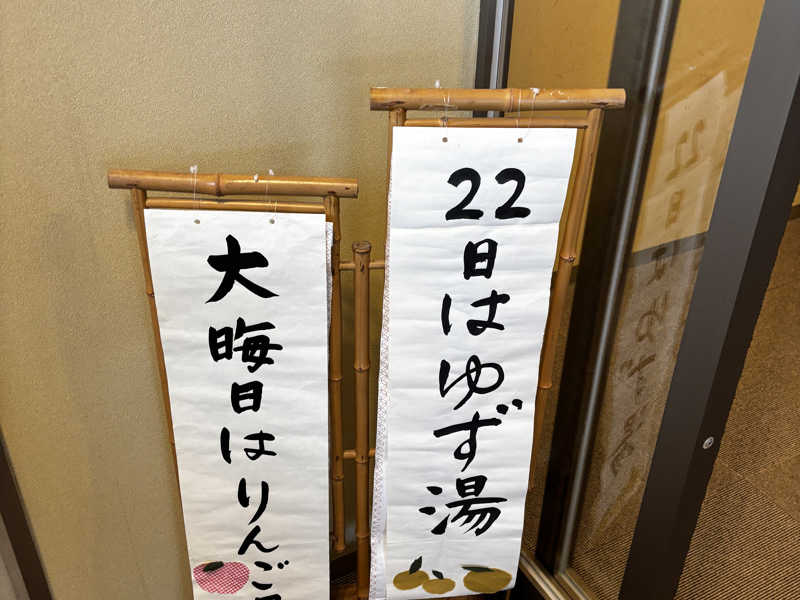 22日はゆず湯
大晦日はりんご